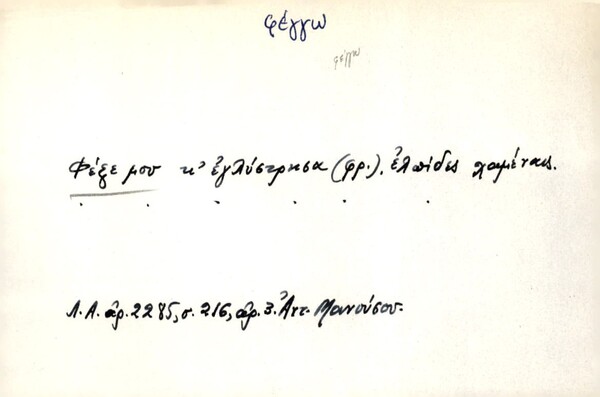 φέγγω
φέγγω
Φέξε μου κ' ἐγλύστρησα (φρ.). ἐλπίδες χαμέναις.
Λ.Α. ἀρ. 2285, σ. 216, ἀρ. 3. Ἀντ. Μανούσου.